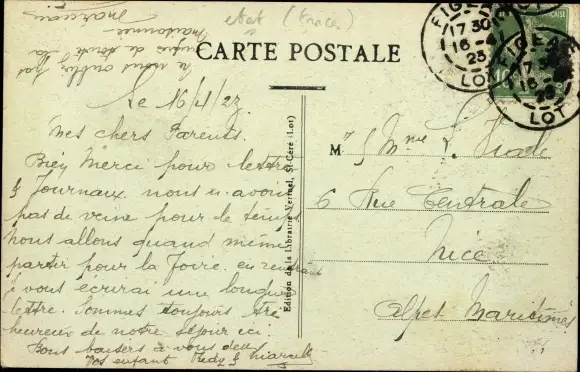 état (traces)
CARTE POSTALE
FIGEAC
17 30
16 -4
25
LOT
FIGEAC
17
16
25
LOT
Le 16/4/2
Mes chers Parents.
Bien Merci pour lettre
& Journaux, nous n'avons
pas de veine pour le temps
nous allons quand même
partir pour la Foire. en rentrant
je vous écrirai une longue
lettre. Sommes toujours très
heureux de notre séjour ici.
Bons baisers à vous deux
Vos enfant &
ne nous oubliez pas
de
Edition de la Librairie Vertuel, St-Céré (Lot)
M
& Mme
6 Rue Centrale
Nice
Alpes Maritimes